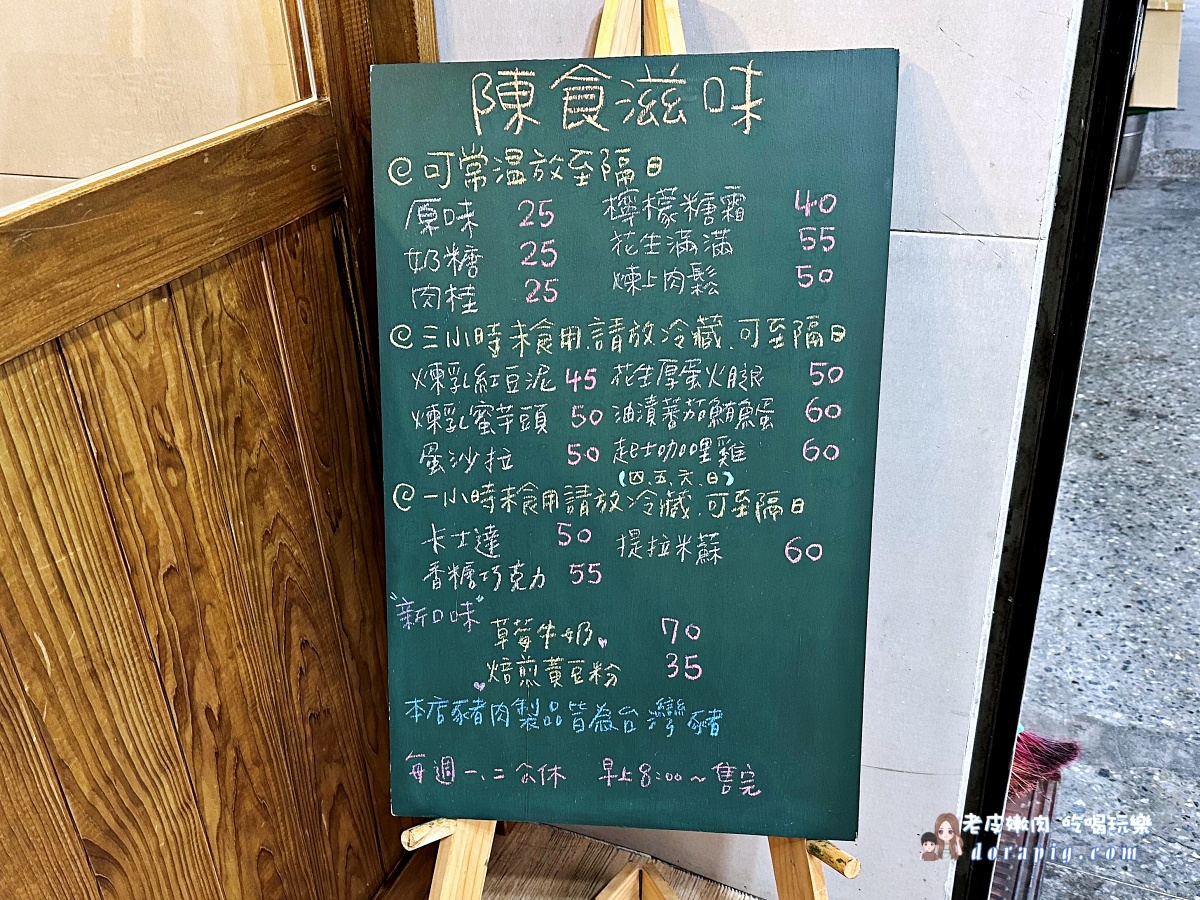 陳食滋味
@可常溫放至隔日
原味 25 檸檬糖霜 40
奶糖 25 花生滿滿 55
肉桂 25 煉上肉鬆 50
@三小時未食用.請放冷藏.可至隔日
煉乳紅豆泥 45 花生厚蛋火腿 50
煉乳蜜芋頭 50 油漬蕃茄鮪魚蛋 60
蛋沙拉 50 起士咖哩雞 60
(四.五.六.日)
@一小時未食用請放冷藏.可至隔日
卡士達 50 提拉米蘇 60
香糖巧克力 55
"新口味"
草莓牛奶 70
焙煎黃豆粉 35
本店豬肉製品皆為台灣豬
每週一、二公休 早上8:00~售完
老皮嫩肉 吃喝玩樂
dorapig.com